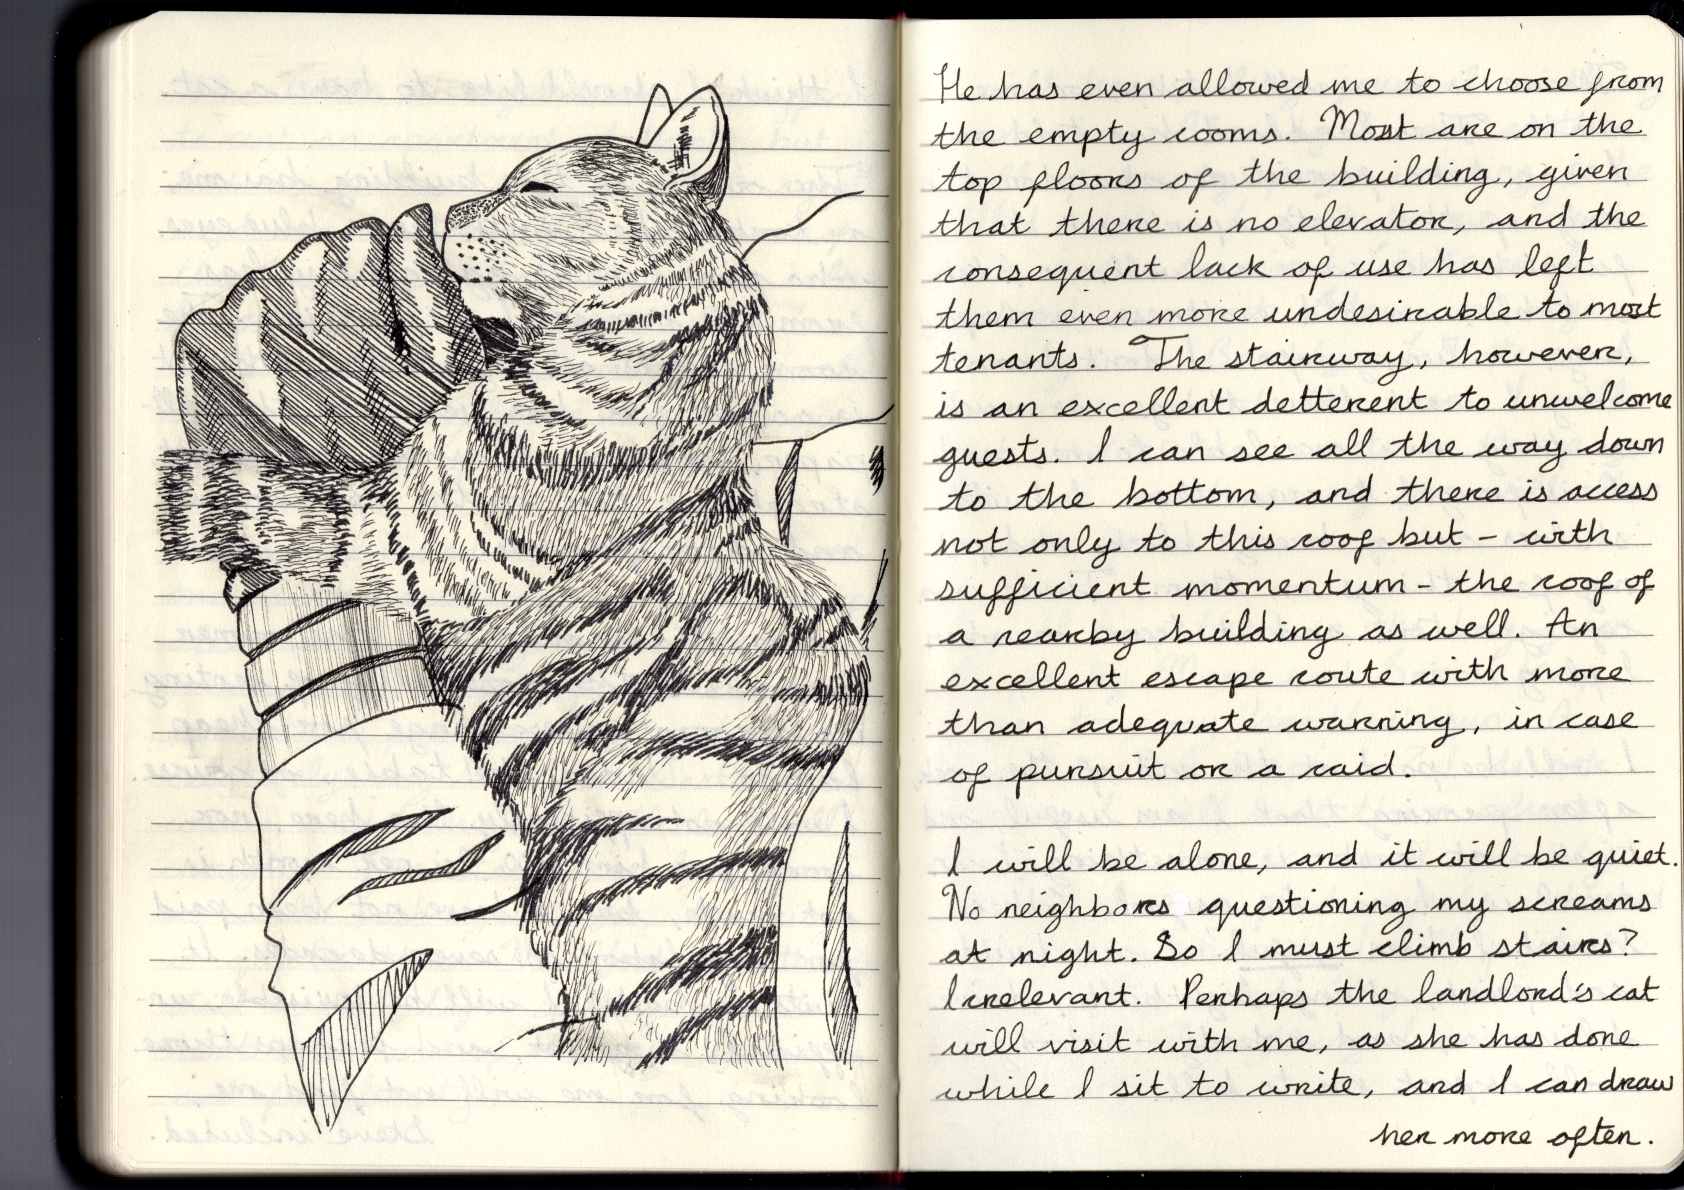 He has even allowed me to choose from
the empty rooms. Most are on the
top floors of the building, given
that there is no elevator, and the
consequent lack of use has left
them even more undesirable to most
tenants. The stairway, however,
is an excellent detterent to unwelcome
guests. I can see all the way down
to the bottom, and there is access
not only to this roof but - with
sufficient momentum - the roof of
a nearby building as well. An
excellent escape route with more
than adequate warning, in case
of pursuit or a raid.
I will be alone, and it will be quiet.
No neighbors questioning my screams
at night. So I must climb stairs?
Irrelevant. Perhaps the landlord's cat
will visit with me, as she has done
while I sit to write, and I can draw
her more often.